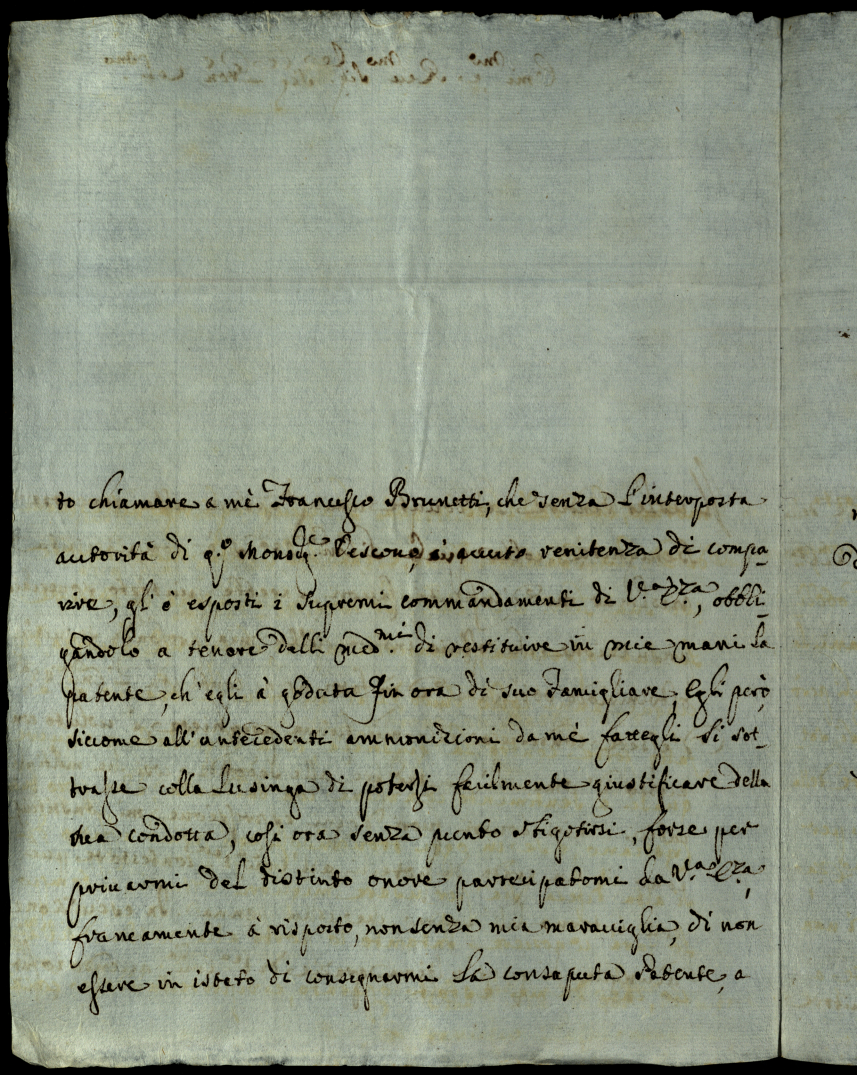 to chiamare a mè Francesco Brunetti, che senza l'interposta
autorità di q.o Mons.re Vescovo, à auuto renitenza di compa-
rire, gl'ò esposti i supremi commandamenti di V.a E.za, obbli-
gandolo a tenore delli med.mi di restituire in mie mani la
patente, ch'egli à goduta fin ora di suo Famigliare, Egli però,
siccome all'antecedenti ammonizioni da mé fattegli si sot-
trasse colla lusinga di potersi facilmente giustificare della
sua condotta, così ora senza punto sbigotirsi, forse per
priuarmi del distinto onore partecipatomi da V.a E.za,
francamente à risposto, non senza mia marauiglia, di non
essere in istato di consegnarmi la consaputa Patente, a